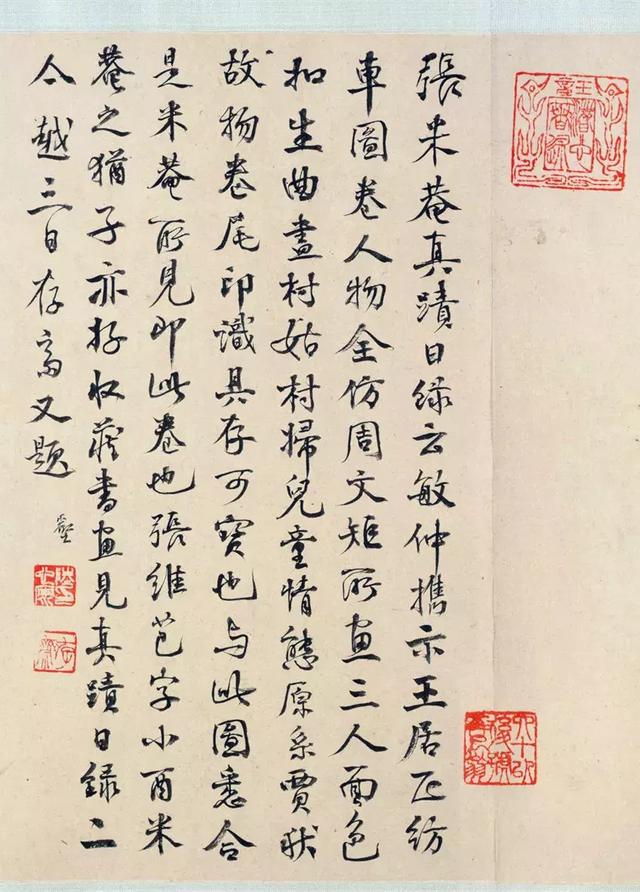 張米菴真蹟日録云敏仲攜示王居正紡
車圖卷人物全仿周文矩所画三人面色
如生曲盡村姑村婦兒童情態原系賈秋
故物卷尾印識具存可寶也与此圖悉合
是米菴所見即此卷也張維芑字小酉米
菴之猶子亦好收藏書画見真蹟日録二
亼越三日存齋又題
壑